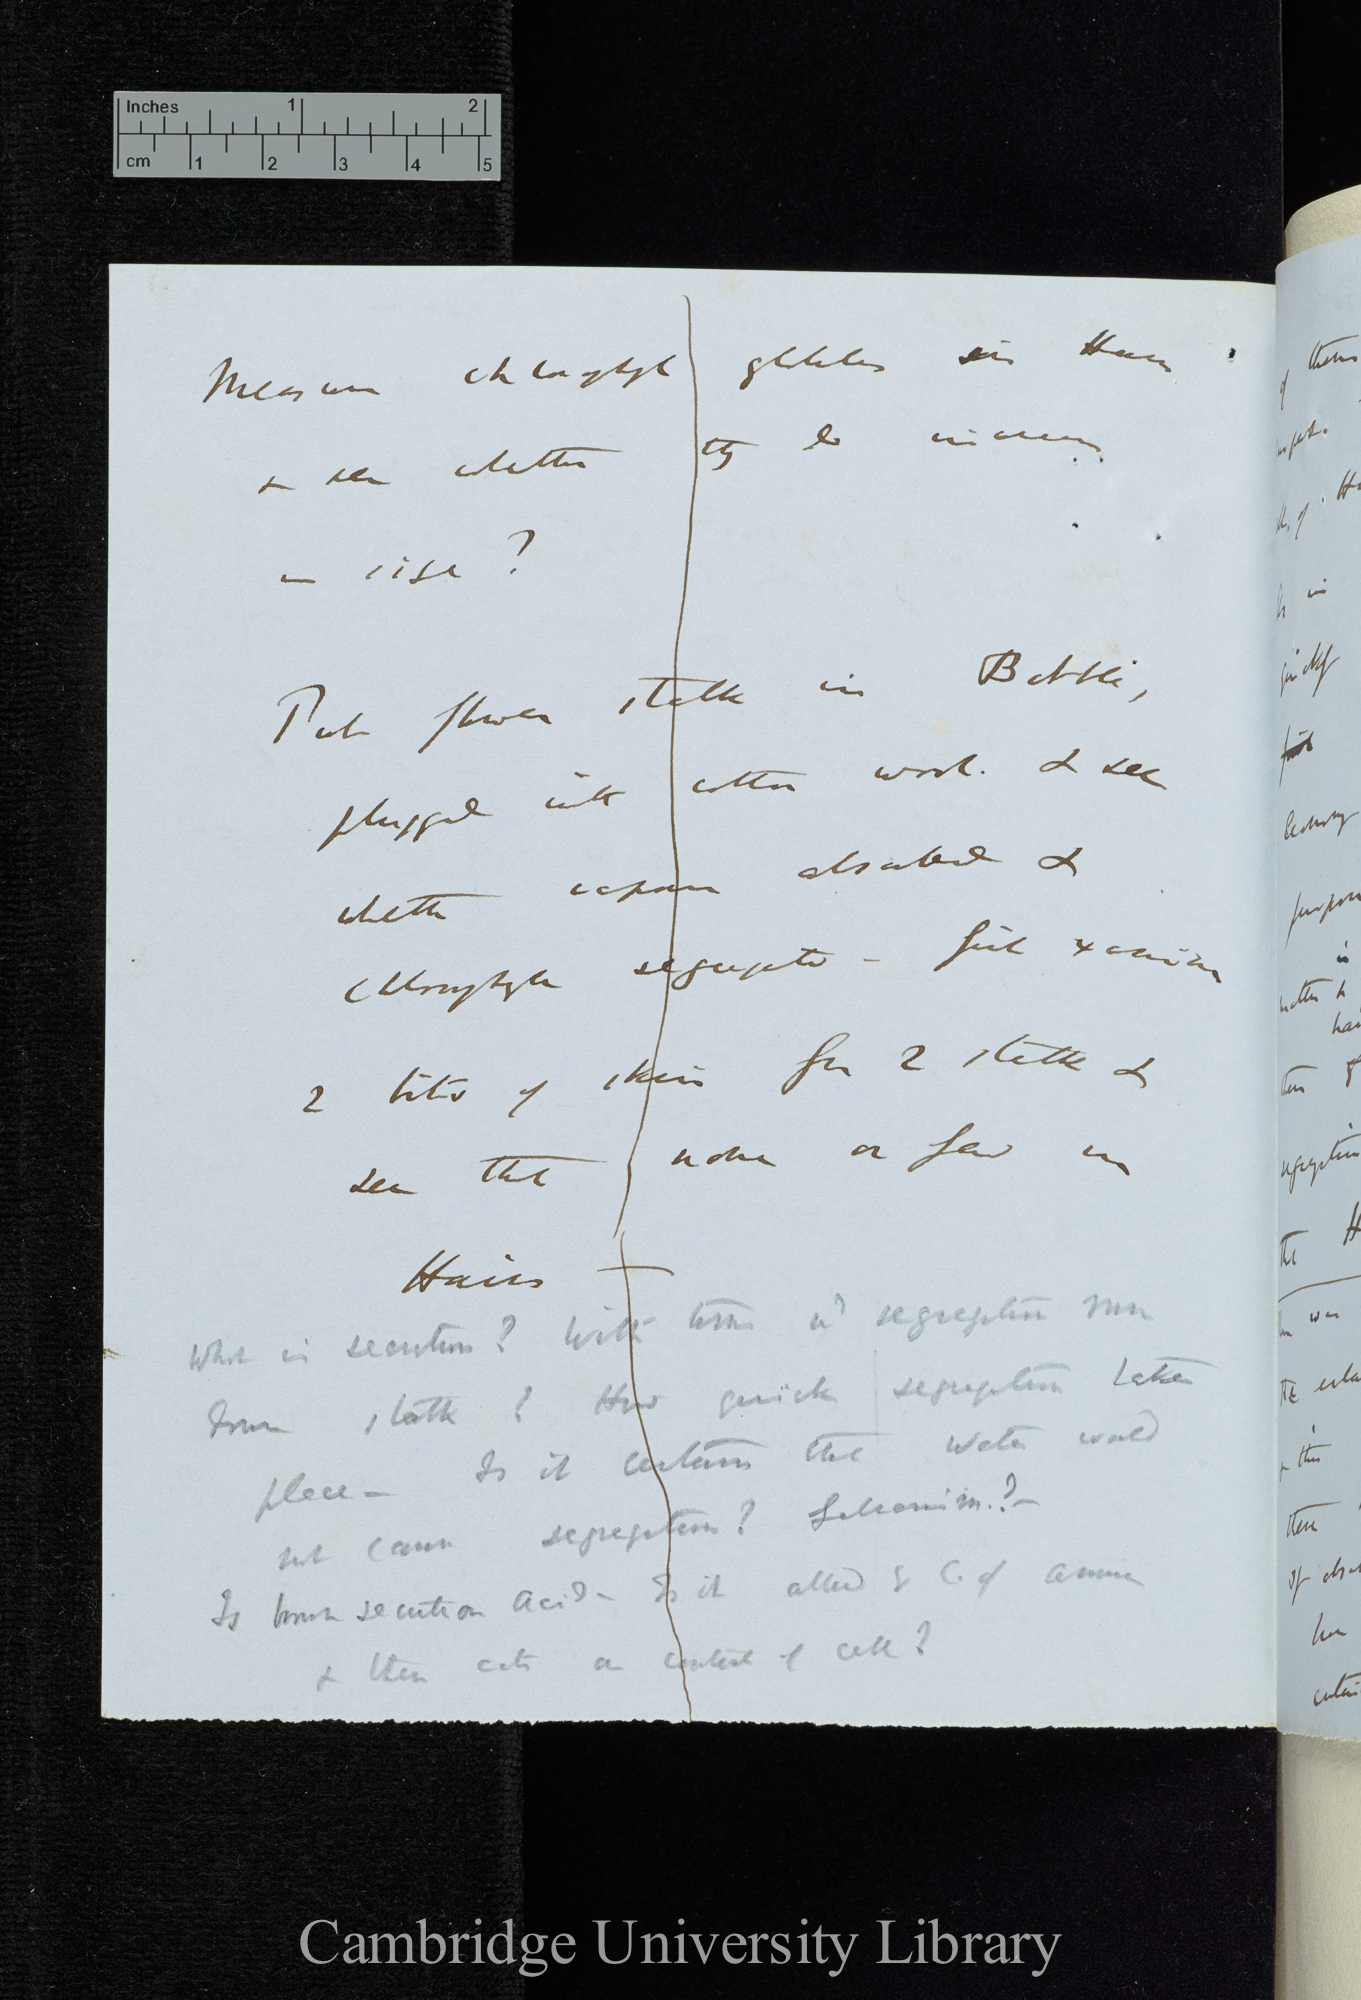 Inches 1 2
cm 1 2 3 4 5
Measure chlorophyll globules in Hairs
& see whether they do increase
in size?
Put flower stalk in Bottle,
plugged with cotton wool. & see
whether vapour absorbed &
chlorophyll segregate - first examine
2 bits of skin for 2 stalk &
see that none or few in
Hairs
What is secretion? With segregation run
down stalk? How quick segregation takes
place - Is it certain that water would
not cause segregation? Geranium.? -
Is brown secretion acid - Is it allied to C. of Ammonia
& then acts on contents of cell?
Cambridge University Library